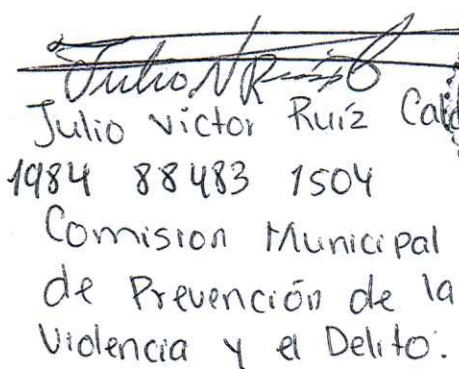 Julio V Ruíz C
Julio victor Ruíz
1984 88483 1504
Comision Municipal
de Prevención de la
Violencia y el Delito.